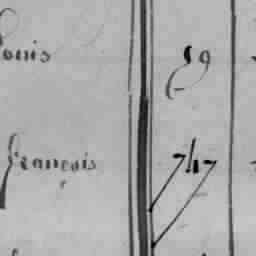 Louis 59
françois 747